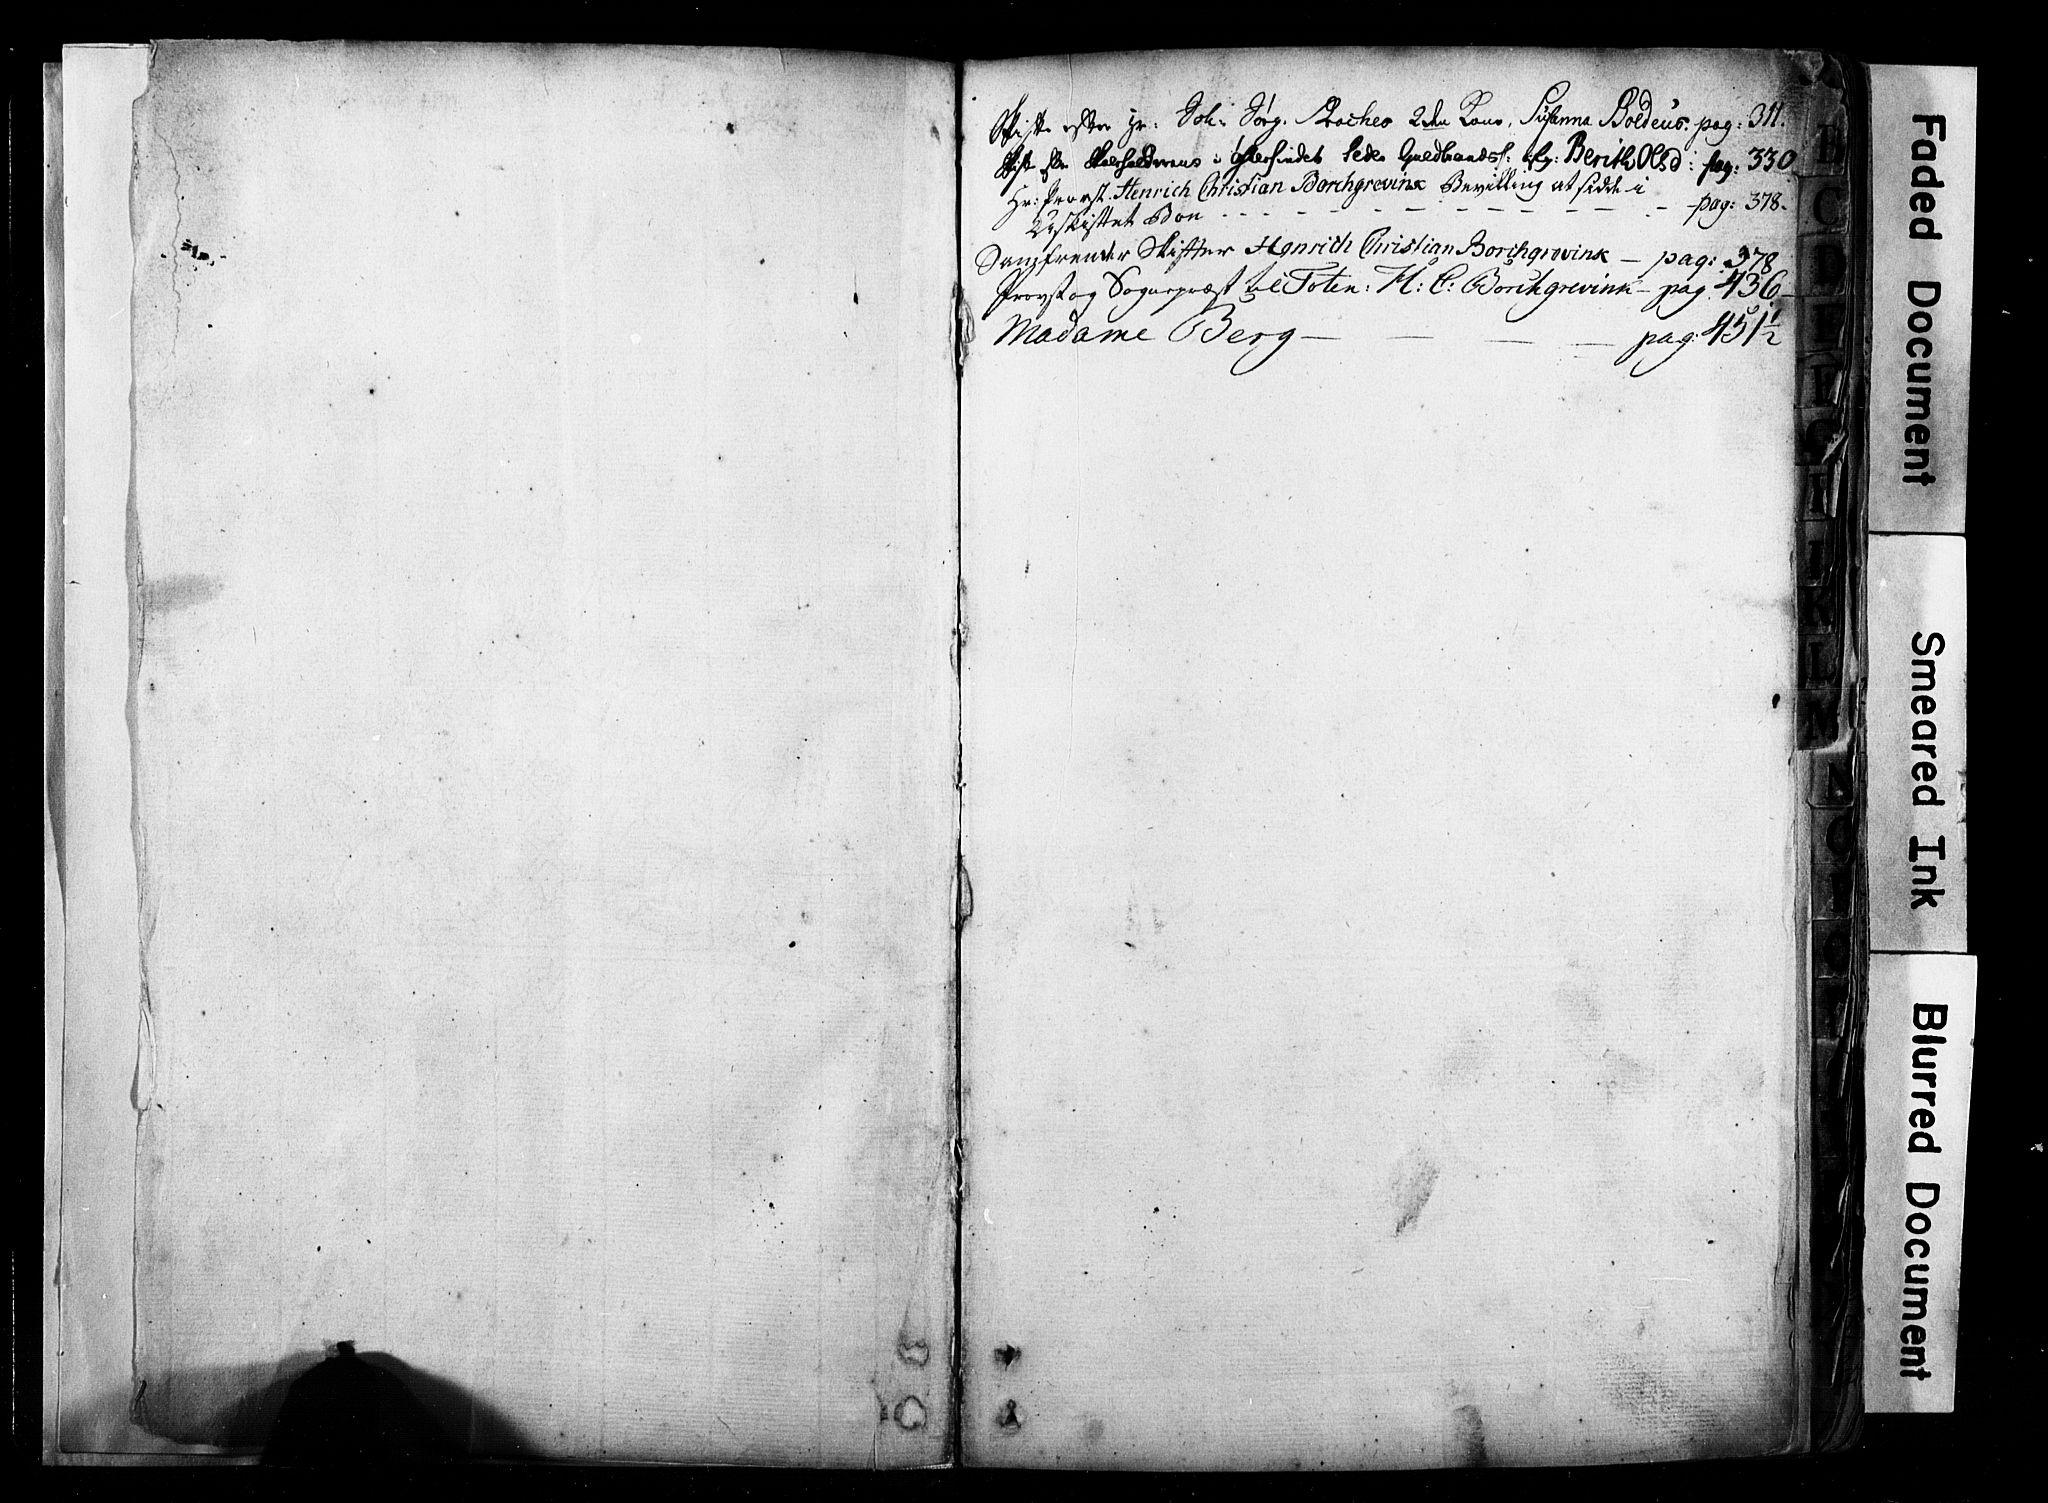 Skifte efter Hr: Joh: Jörg. Roches 2den Kone, Susanna Boldeus. pag: 311.
Skifte efter Skoleholderens i Østersindet Peder Guldbrands: Berith Olsd: pag: 330
Hr: Provst Henrich Christian Borchgrevink Bevilling at sidde i
Uskiftet Boe - - - pag: 378.
Samfrender Skifter Henrich Christian Borchgrevink — pag: 378
Provst og Sognepræst til Toten: H: C: Borchgrevink — pag: 436
Madame Berg — — — — pag: 451½
B
C
D
E
F
G
H
I
K
L
M
N
O
P
Q
R
Faded Document
Smeared Ink
Blurred Document